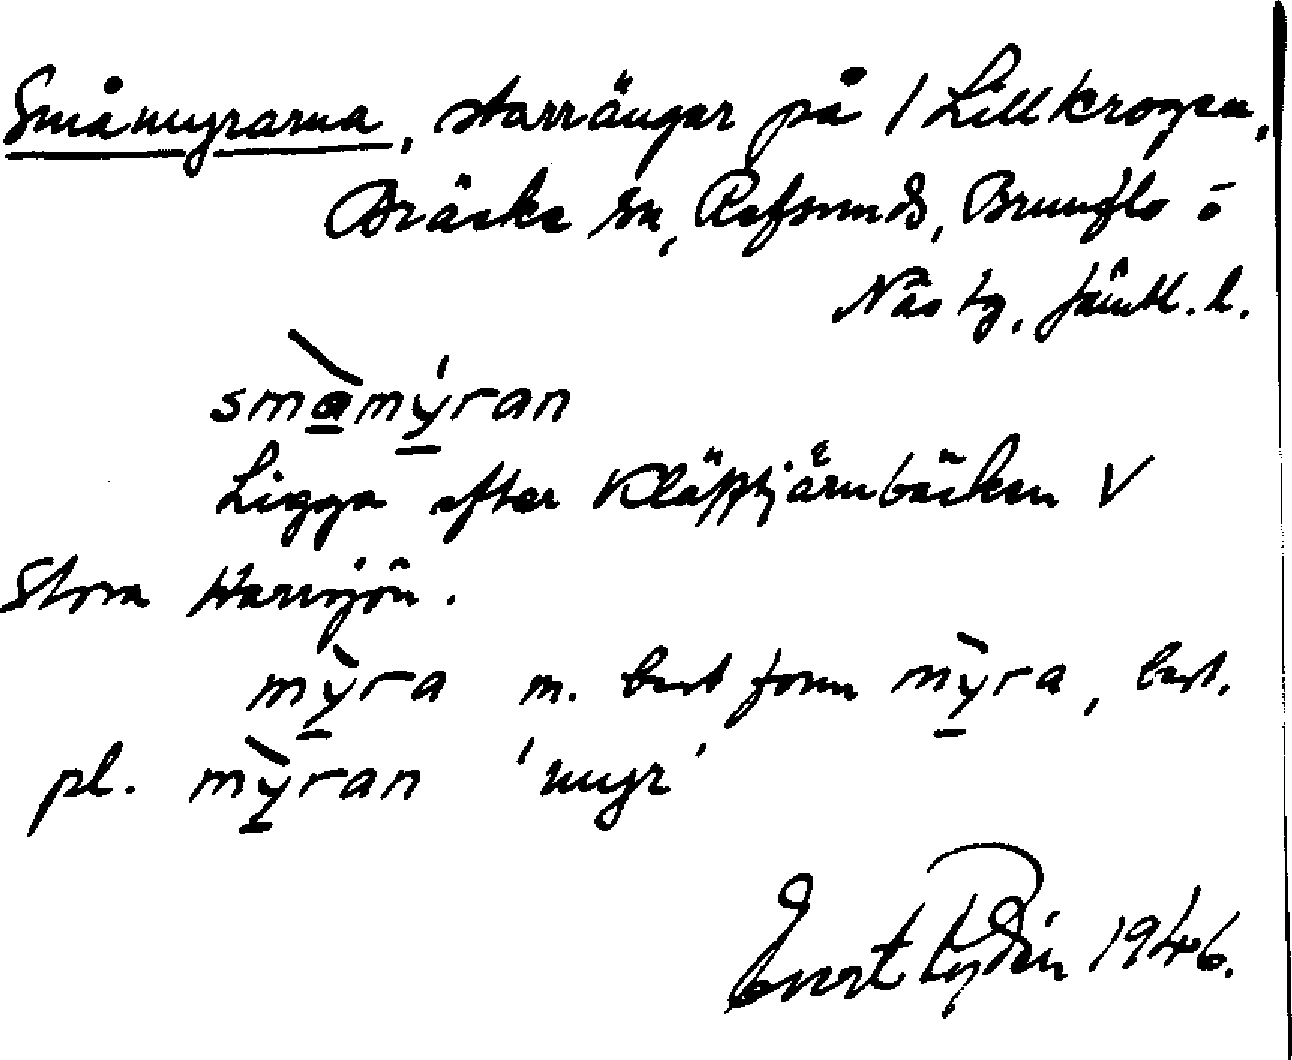 Småmyrarna, starrängar på 1 Lillkrogen,
Bräcke sn, Refsunds, Brunflo o
Näs tg, Jämtl. l.
småmýran
Ligga efter Kläpptjärnbäcken V
Stora
mỳra m. best form mỳra, best.
pl. mỳran 'myr'
Evert Rydén 1946.